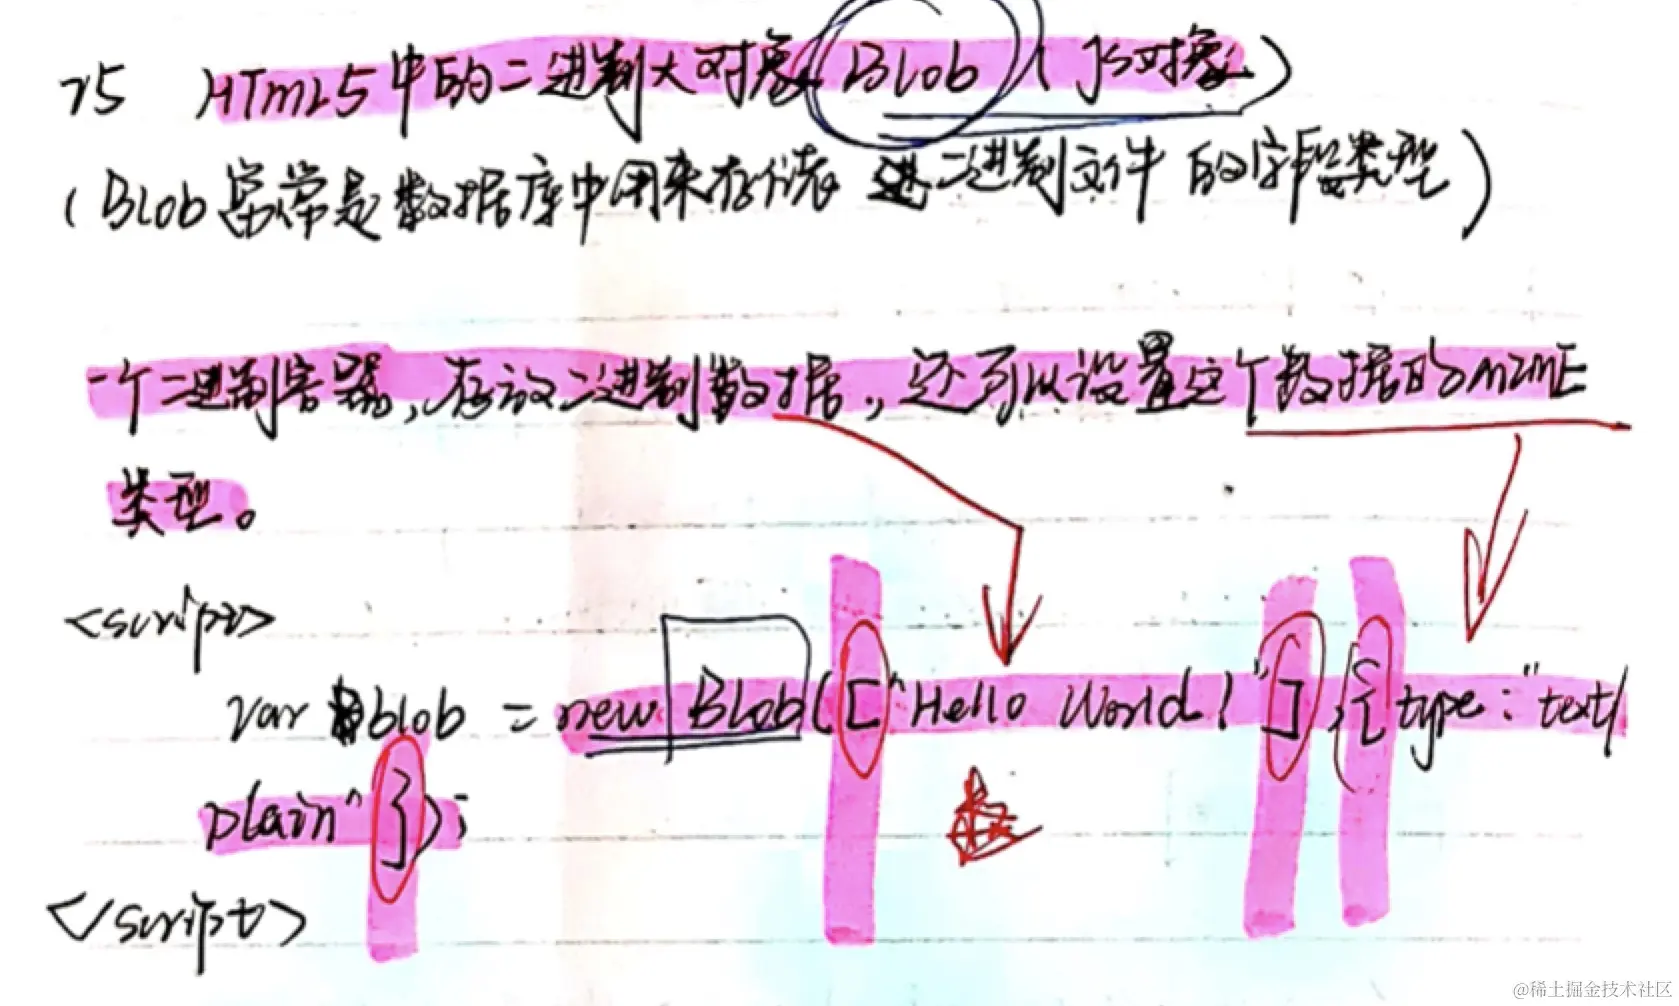 75 HTML5中的二进制大对象 Blob (JS对象)
(Blob常常是数据库中用来存储二进制文件的字段类型)
一个二进制容器,存放二进制数据,还可以设置这个数据的MIME
类型。
<script>
var blob = new Blob(["Hello World!"],{type:"text/
plain"});
</script>
@稀土掘金技术社区